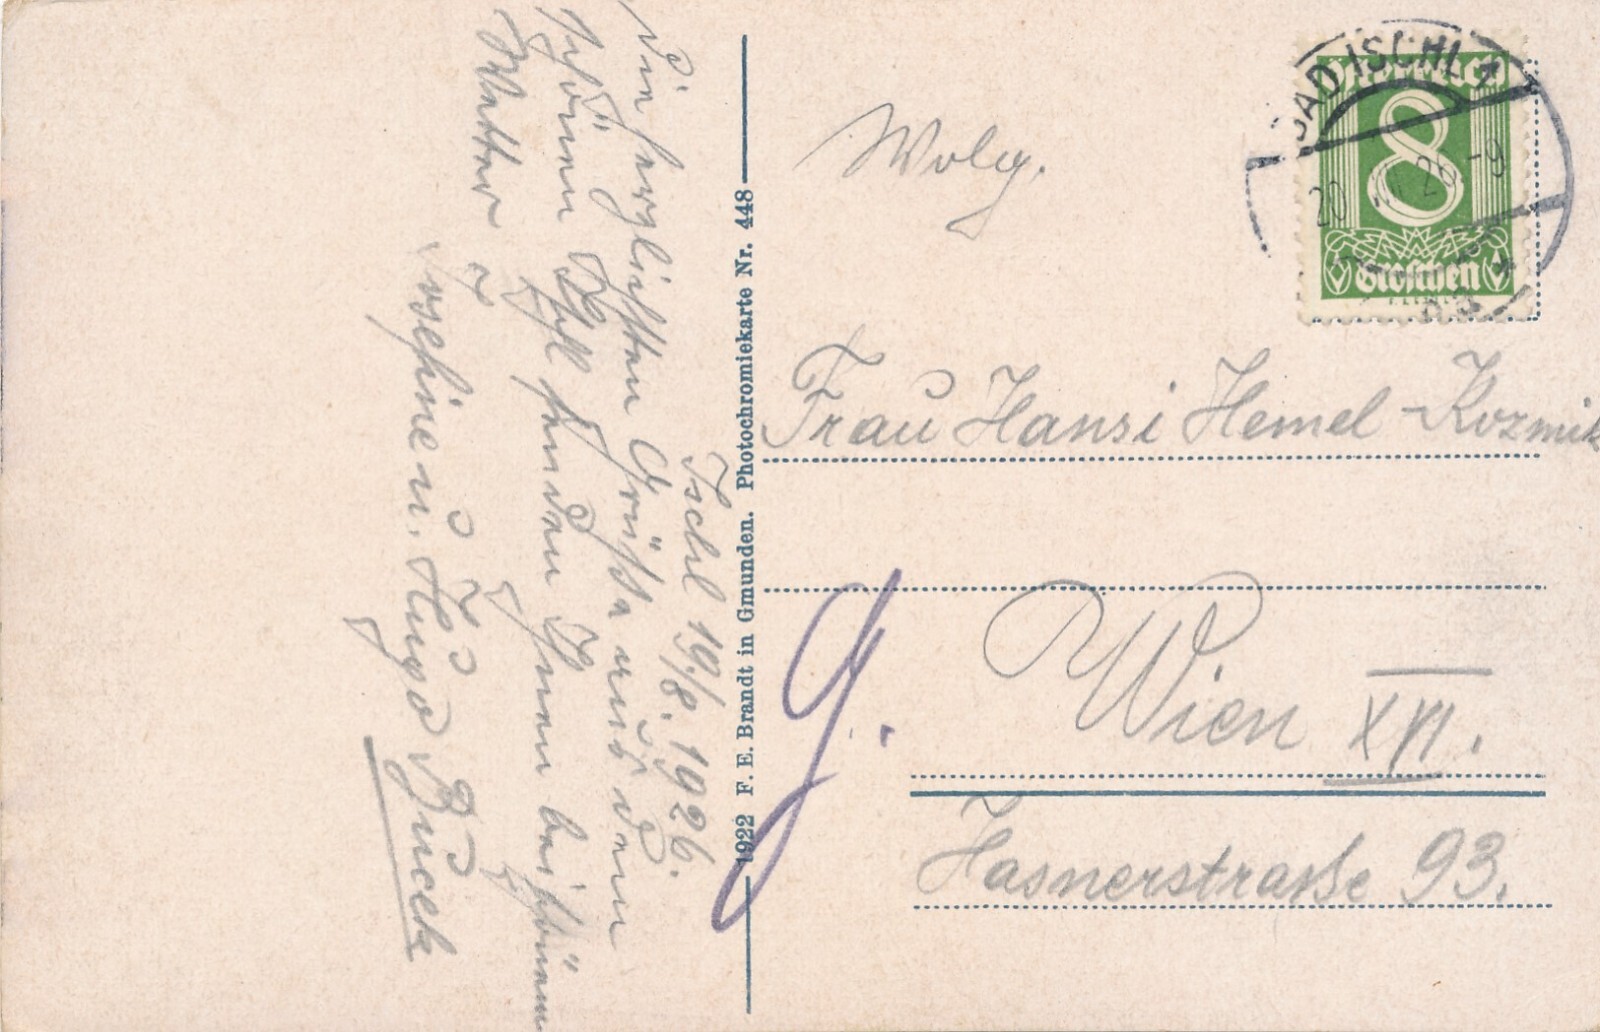 Ischl 19./8. 1926.
Die herzlichsten Grüße aus dem
schönen Ischl senden Ihnen bei schönem
Wetter
u. Hugo Bucek
1922 F. E. Brandt in Gmunden. Photochromiekarte Nr. 448
BAD ISCHL
20 26 -9
8
Groschen
Frau Hansi Hemel-Kozmik
Wien XVI.
Hasnerstraße 93.